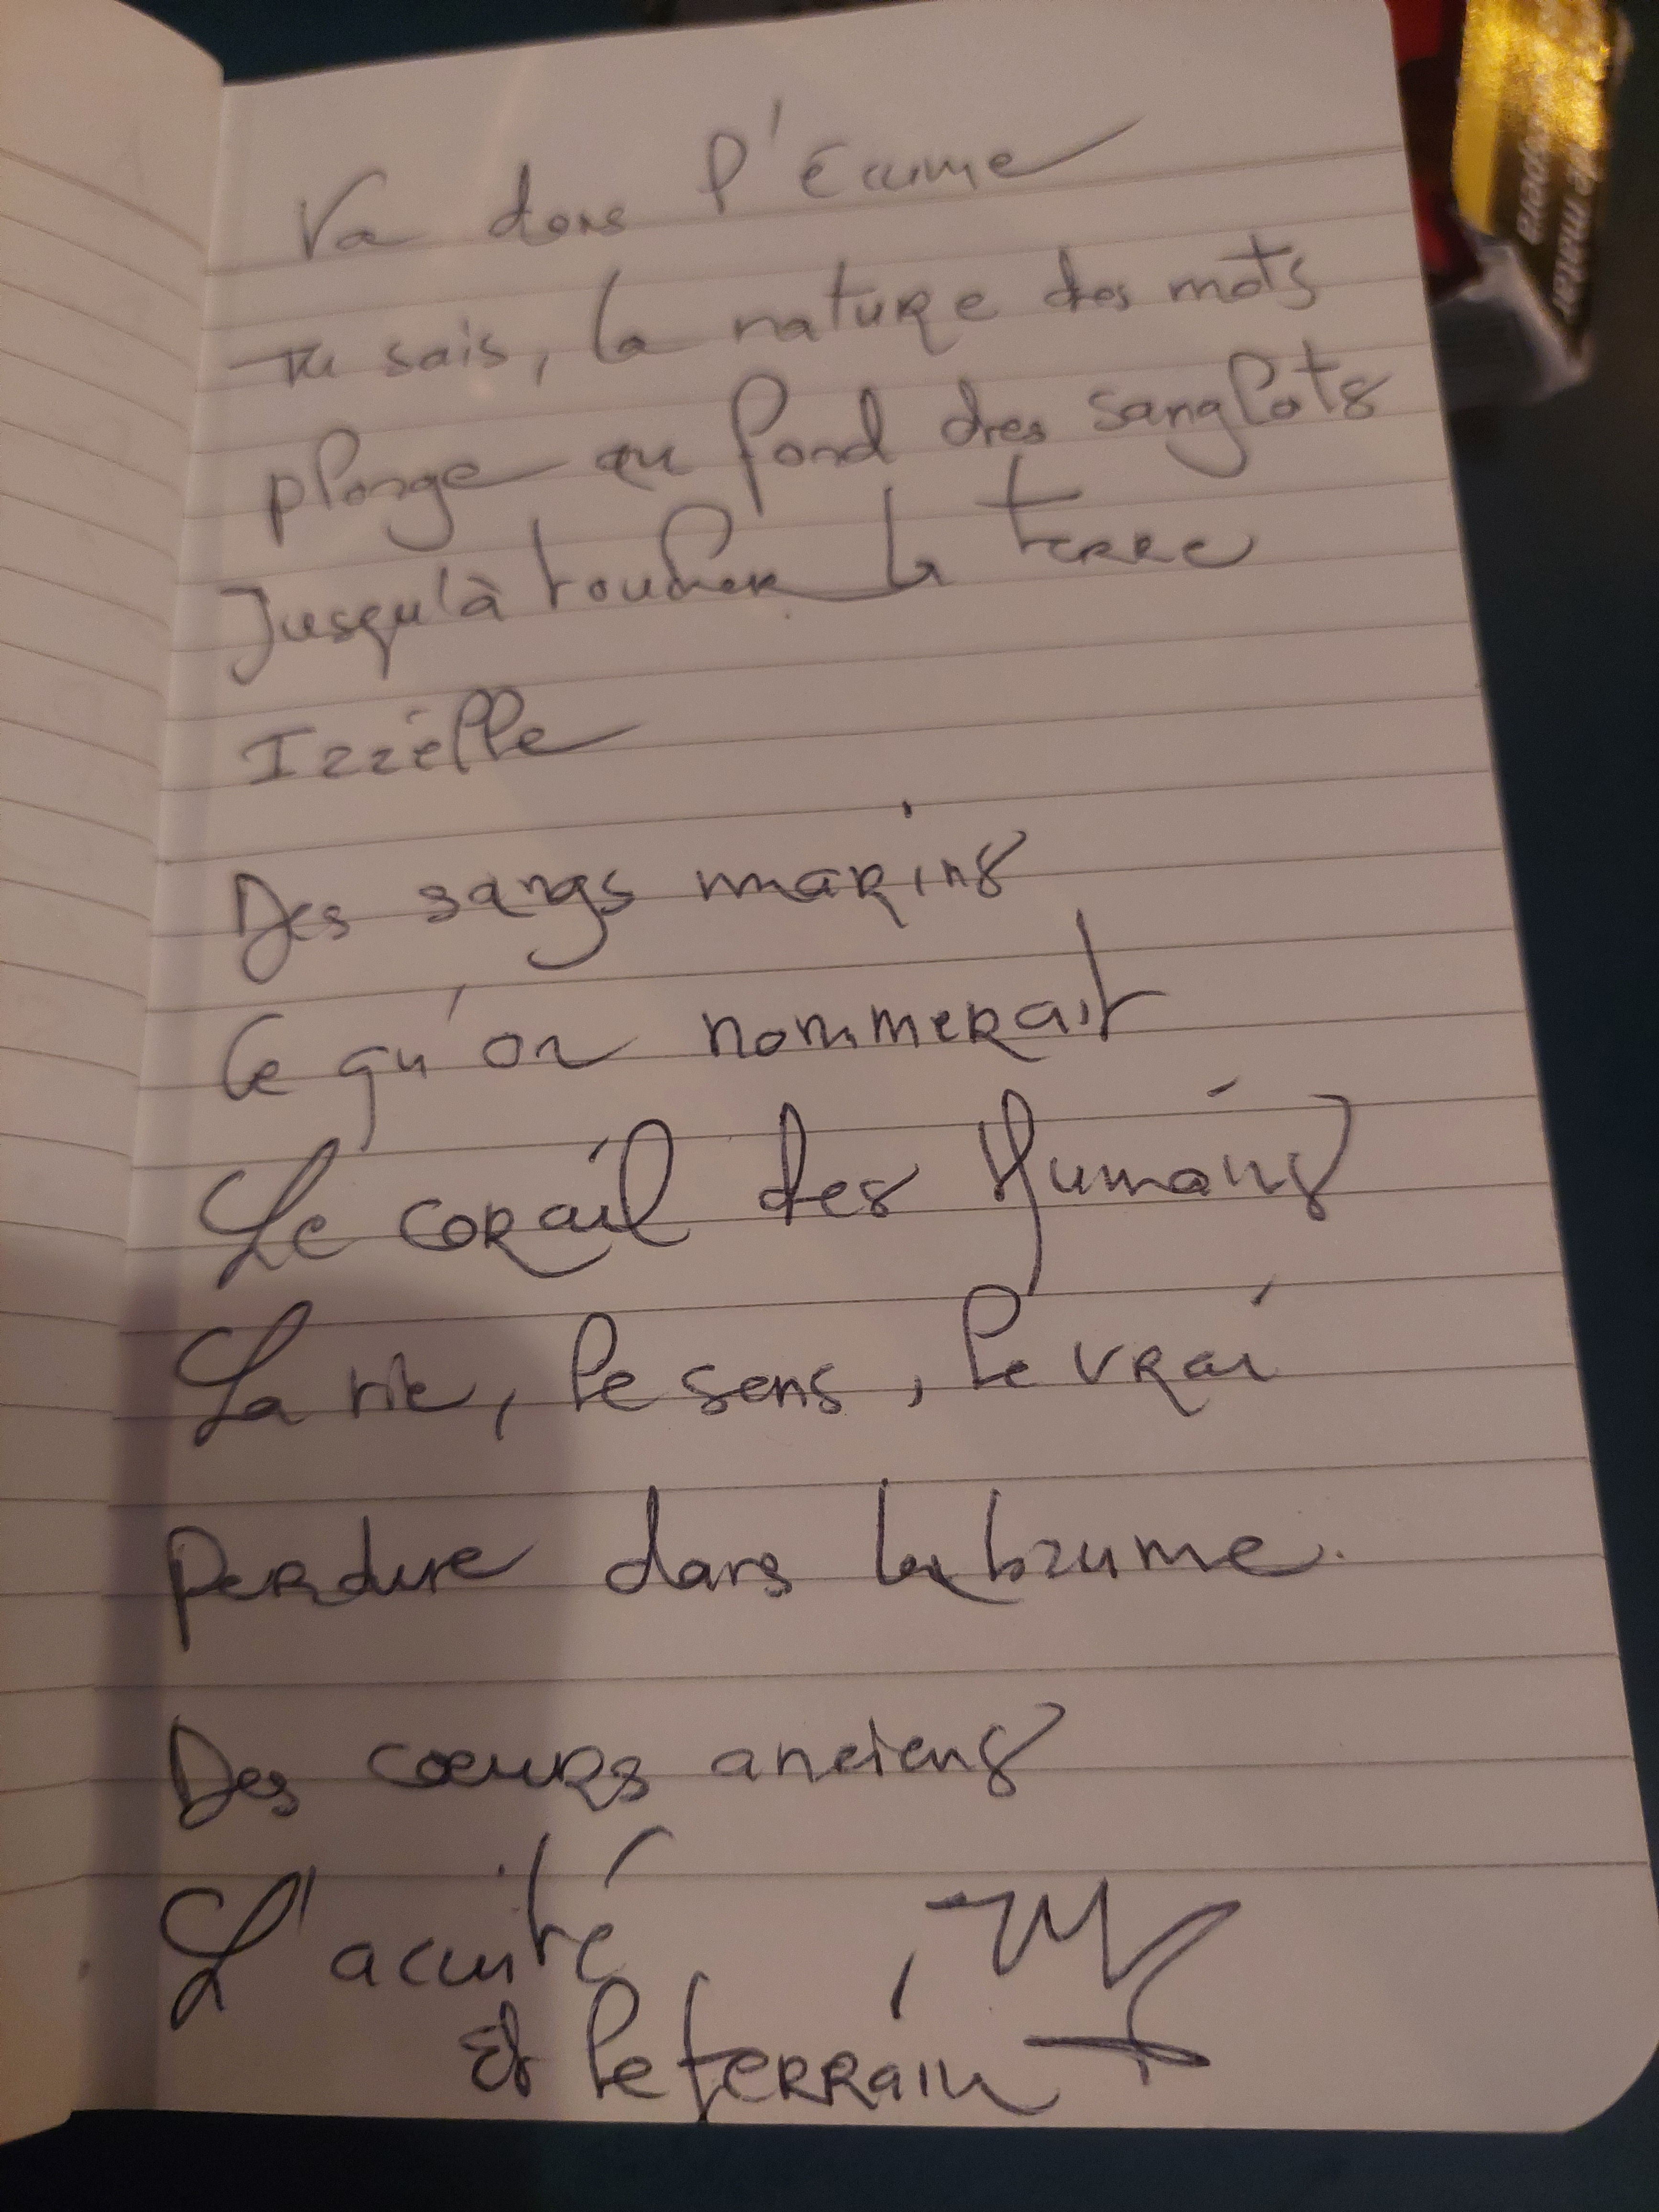 Va dans l'Écume
Tu sais, la nature des mots
plonge au fond des sanglots
Jusqu'à toucher la terre
Izzèlle
Des sangs marins
Ce qu'on nommerait
Le corail des Humains
La vie, le sens, le vrai
Perdure dans la brume.
Des cœurs anciens
L'acuité
Et le terrain